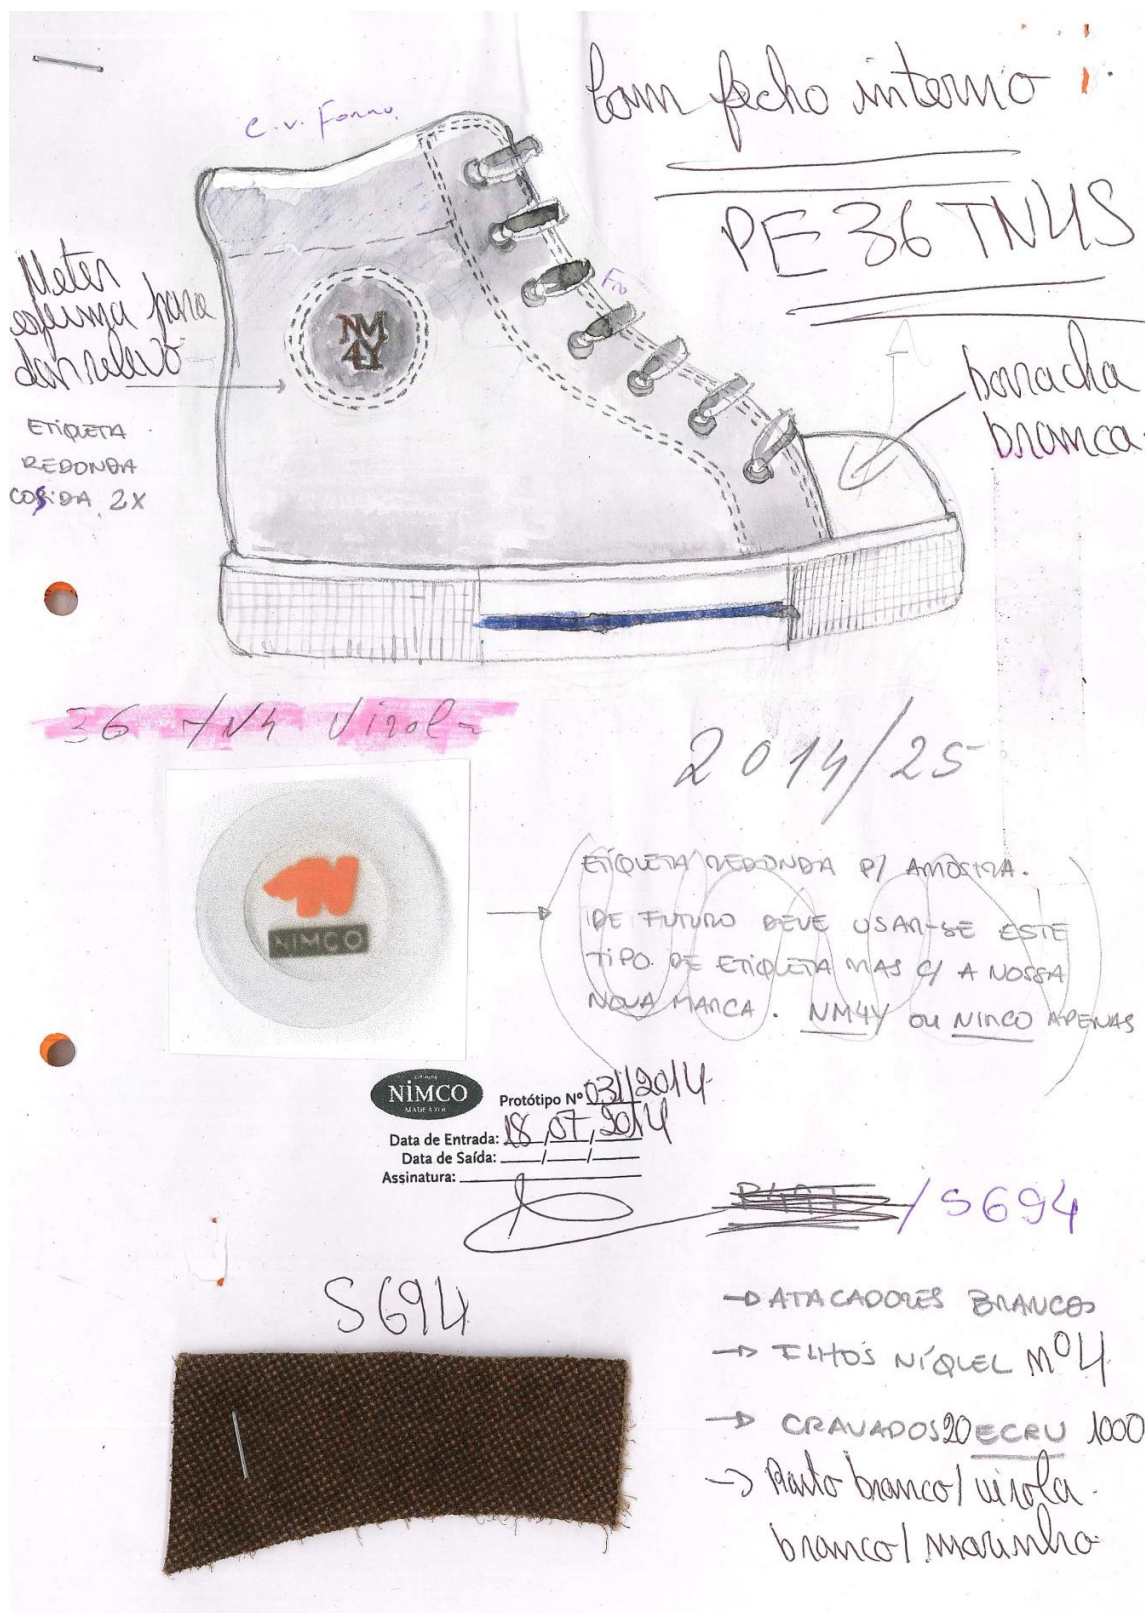 Com fecho interno
PE 36 TN4S
C.V. Forro
Meter
espuma para
dar relevo
ETIQUETA
REDONDA
COSIDA 2X
NM
4Y
Fro
borracha
branca
36 TN4 Virola
2014/25
NIMCO
ETIQUETA REDONDA P/ AMOSTRA.
DE FUTURO DEVE USAR-SE ESTE
TIPO DE ETIQUETA MAS C/ A NOSSA
NOVA MARCA. NM4Y OU NIMCO APENAS
NIMCO
MADE 4 YOU
Protótipo Nº 031/2014
Data de Entrada: 18/07/2014
Data de Saída: __/__/__
Assinatura:
/S694
S694
→ ATACADORES BRANCOS
→ ILHÓS NÍQUEL Nº 4
→ CRAVADOS 20 ECRU 1000
→ Rasto branco/virola
branco/marinho